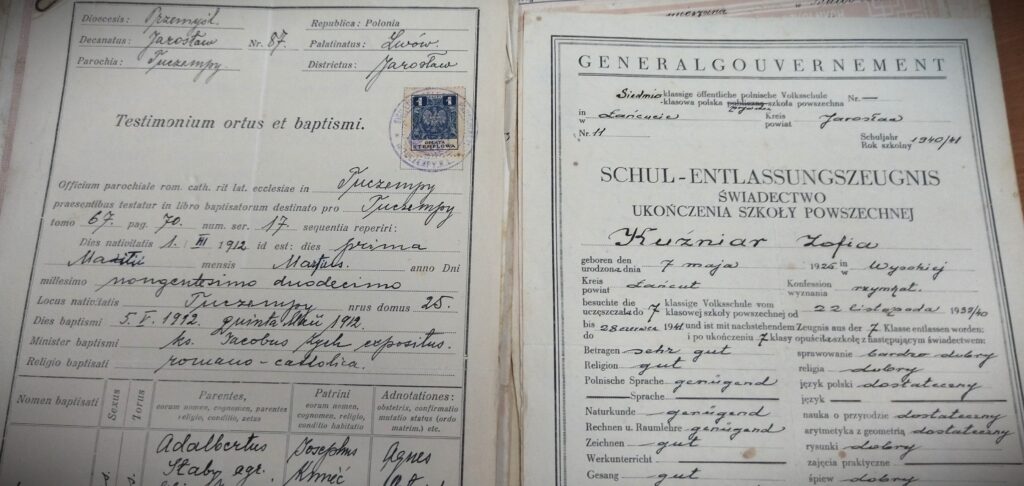 Dioecesis: Przemyśl.
Decanatus: Jarosław Nr. 87.
Parochia: Tuczempy.
Republica: Polonia
Palatinatus: Lwów.
Districtus: Jarosław
1 1
OPŁATA
STEMPLOWA
Testimonium ortus et baptismi.
Officium parochiale rom. cath. rit lat. ecclesiae in Tuczempy
praesentibus testatur in libro baptisatorum destinato pro Tuczempy
tomo 67. pag. 70. num. ser. 17 sequentia reperiri:
Dies nativitatis 1. III 1912 id est: dies prima
mensis Martius. anno Dni
millesimo nongentesimo duodecimo
Locus nativitatis Tuczempy nrus domus 25.
Dies baptismi 5. V. 1912. quinta Maii 1912.
Minister baptismi ks. Jacobus expositus.
Religio baptisati romano-cattolica.
Nomen baptisati
Sexus
Torus
Parentes,
eorum nomen, cognomen, parentes
religio, conditio, aetas
Patrini
eorum nomen,
cognomen, religio,
conditio habitatio
Adnotationes:
obstetrix, confirmatio
mutatio status (ordo
matrim.) etc.
Adalbertus Josephus Agnes
Staby agr. Kmieć
GENERALGOUVERNEMENT
Siedmio-klassige öffentliche polnische Volksschule
-klasowa polska publiczna szkoła powszechna Nr. —
in
w Łańcucie Kreis
powiat Jarosław
Nr. 11
Schuljahr
Rok szkolny 1940/41
SCHUL-ENTLASSUNGSZEUGNIS
ŚWIADECTWO
UKOŃCZENIA SZKOŁY POWSZECHNEJ
Kuźniar Zofia
geboren den
urodzona dnia 7 maja 1926 in
w Wysokiej
Kreis
powiat Łańcut Konfession
wyznania rzymkat.
besuchte die 7 klassige Volksschule vom
uczęszczała do 7 klasowej szkoły powszechnej od 22 listopada 1939/40
bis
do 28 czerwca 1941 und ist mit nachstehendem Zeugnis aus der 7 Klasse entlassen worden:
i po ukończeniu 7 klasy opuściła szkołę z następującym świadectwem:
Betragen sehr gut sprawowanie bardzo dobry
Religion gut religia dobry
Polnische Sprache genügend język polski dostateczny
— Sprache — język —
Naturkunde genügend nauka o przyrodzie dostateczny
Rechnen u. Raumlehre genügend arytmetyka z geometrią dostateczny
Zeichnen gut rysunki dobry
Werkunterricht — zajęcia praktyczne —
Gesang gut śpiew dobry